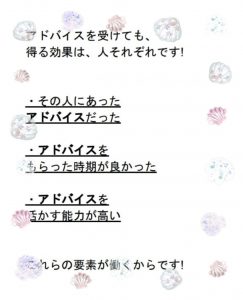 アドバイスを受けても、
得る効果は、人それぞれです!
・その人にあった
アドバイスだった
・アドバイスを
もらった時期が良かった
・アドバイスを
活かす能力が高い
これらの要素が働くからです!